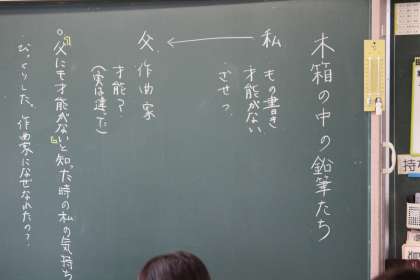 木箱の中の鉛筆たち
私
もの書き
才能がない
ざせつ
父
作曲家
才能?
(実は違った)
父にも才能がないと知った時の私の気持ち
びっくりした。作曲家になぜなれたの?